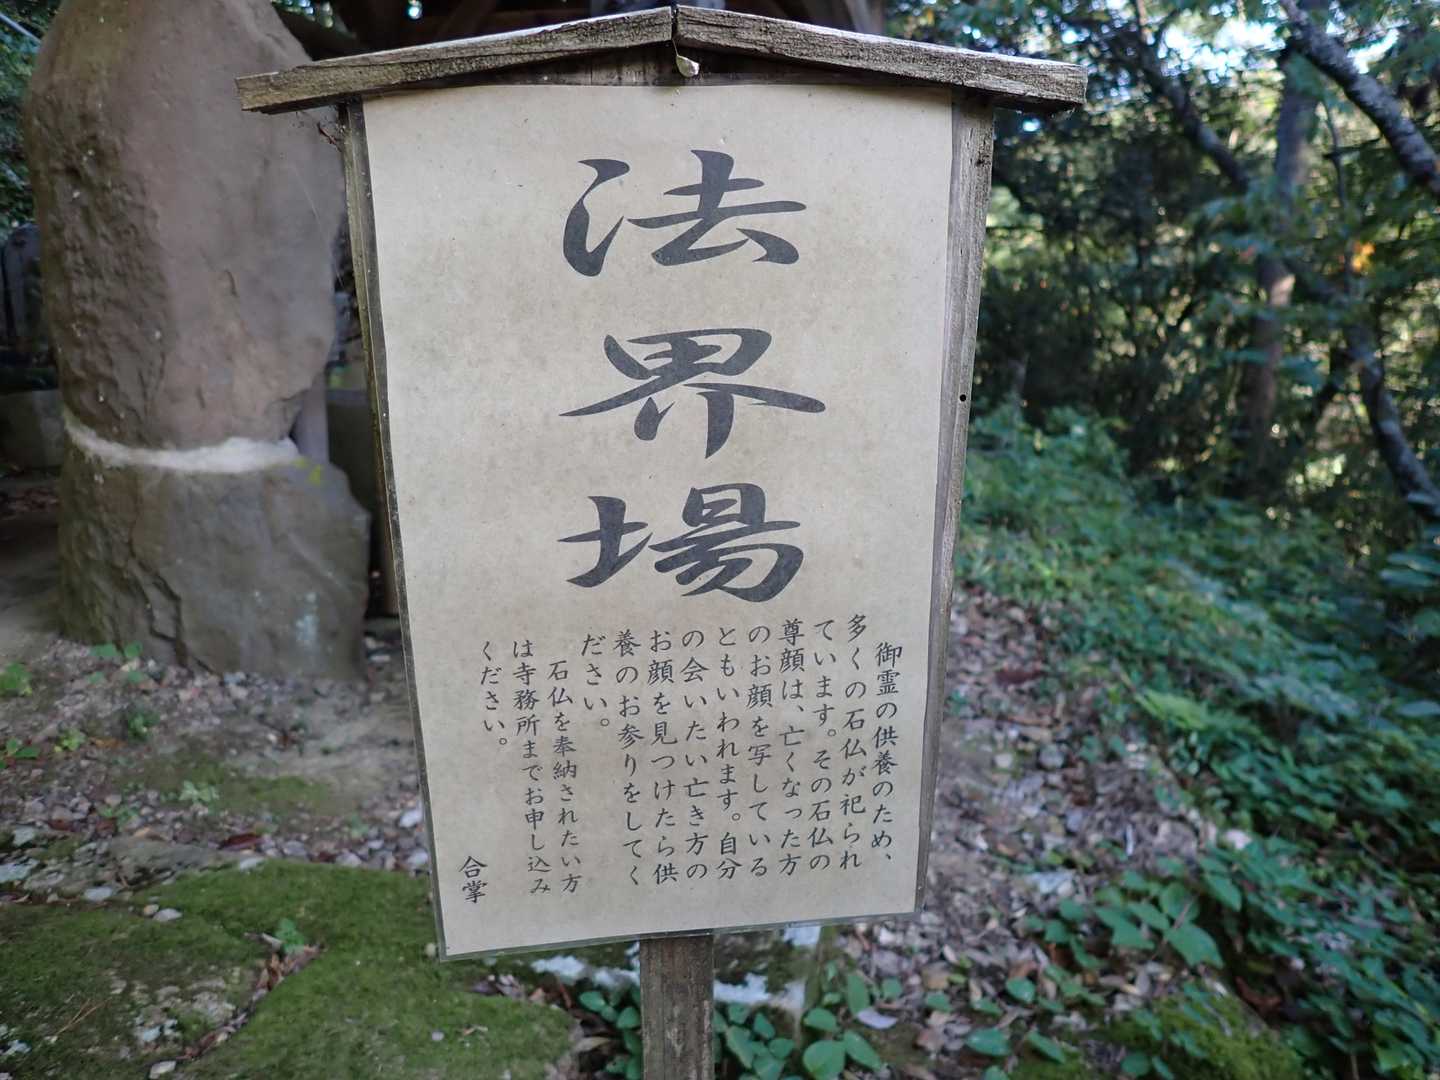 法界場
御霊の供養のため、
多くの石仏が祀られ
ています。その石仏の
尊顔は、亡くなった方
のお顔を写している
ともいわれます。自分
の会いたい亡き方の
お顔を見つけたら供
養のお参りをしてく
ださい。
石仏を奉納されたい方
は寺務所までお申し込み
ください。
合掌